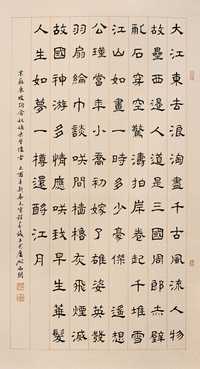 大江東去浪淘盡千古風流人物
故壘西邊人道是三國周郎赤壁
亂石穿空驚濤拍岸卷起千堆雪
江山如畫一時多少豪傑遙想
公瑾當年小喬初嫁雄姿英發
羽扇綸巾談咲間檣櫓灰飛煙滅
故國神游多情應咲我早生華髮
人生如夢一樽還酹江月
宋蘇東坡詞念奴嬌赤壁懷古